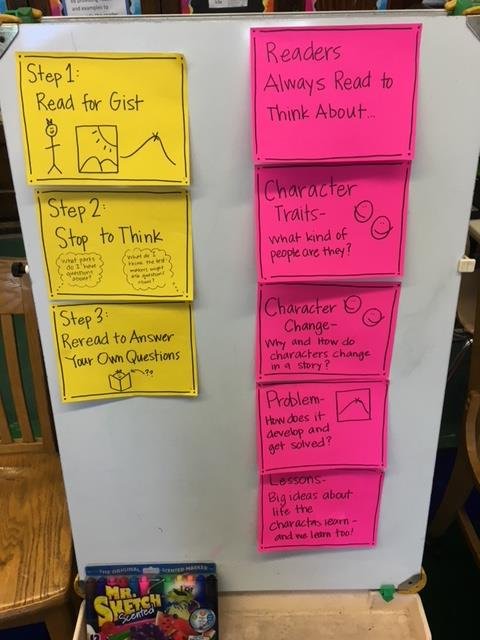 Step 1:
Read for Gist
Step 2:
Stop to Think
What parts
do I have
questions
about?
What do I
think the test
makers might
ask questions
about?
Step 3:
Reread to Answer
Your Own Questions
??
Readers
Always Read to
Think About...
Character
Traits-
What kind of
people are they?
Character
Change-
Why and How do
characters change
in a story?
Problem-
How does it
develop and
get solved?
Lessons-
Big ideas about
life the
characters learn-
and we learn too!
THE ORIGINAL SCENTED MARKER
MR.
SKETCH
Scented
12